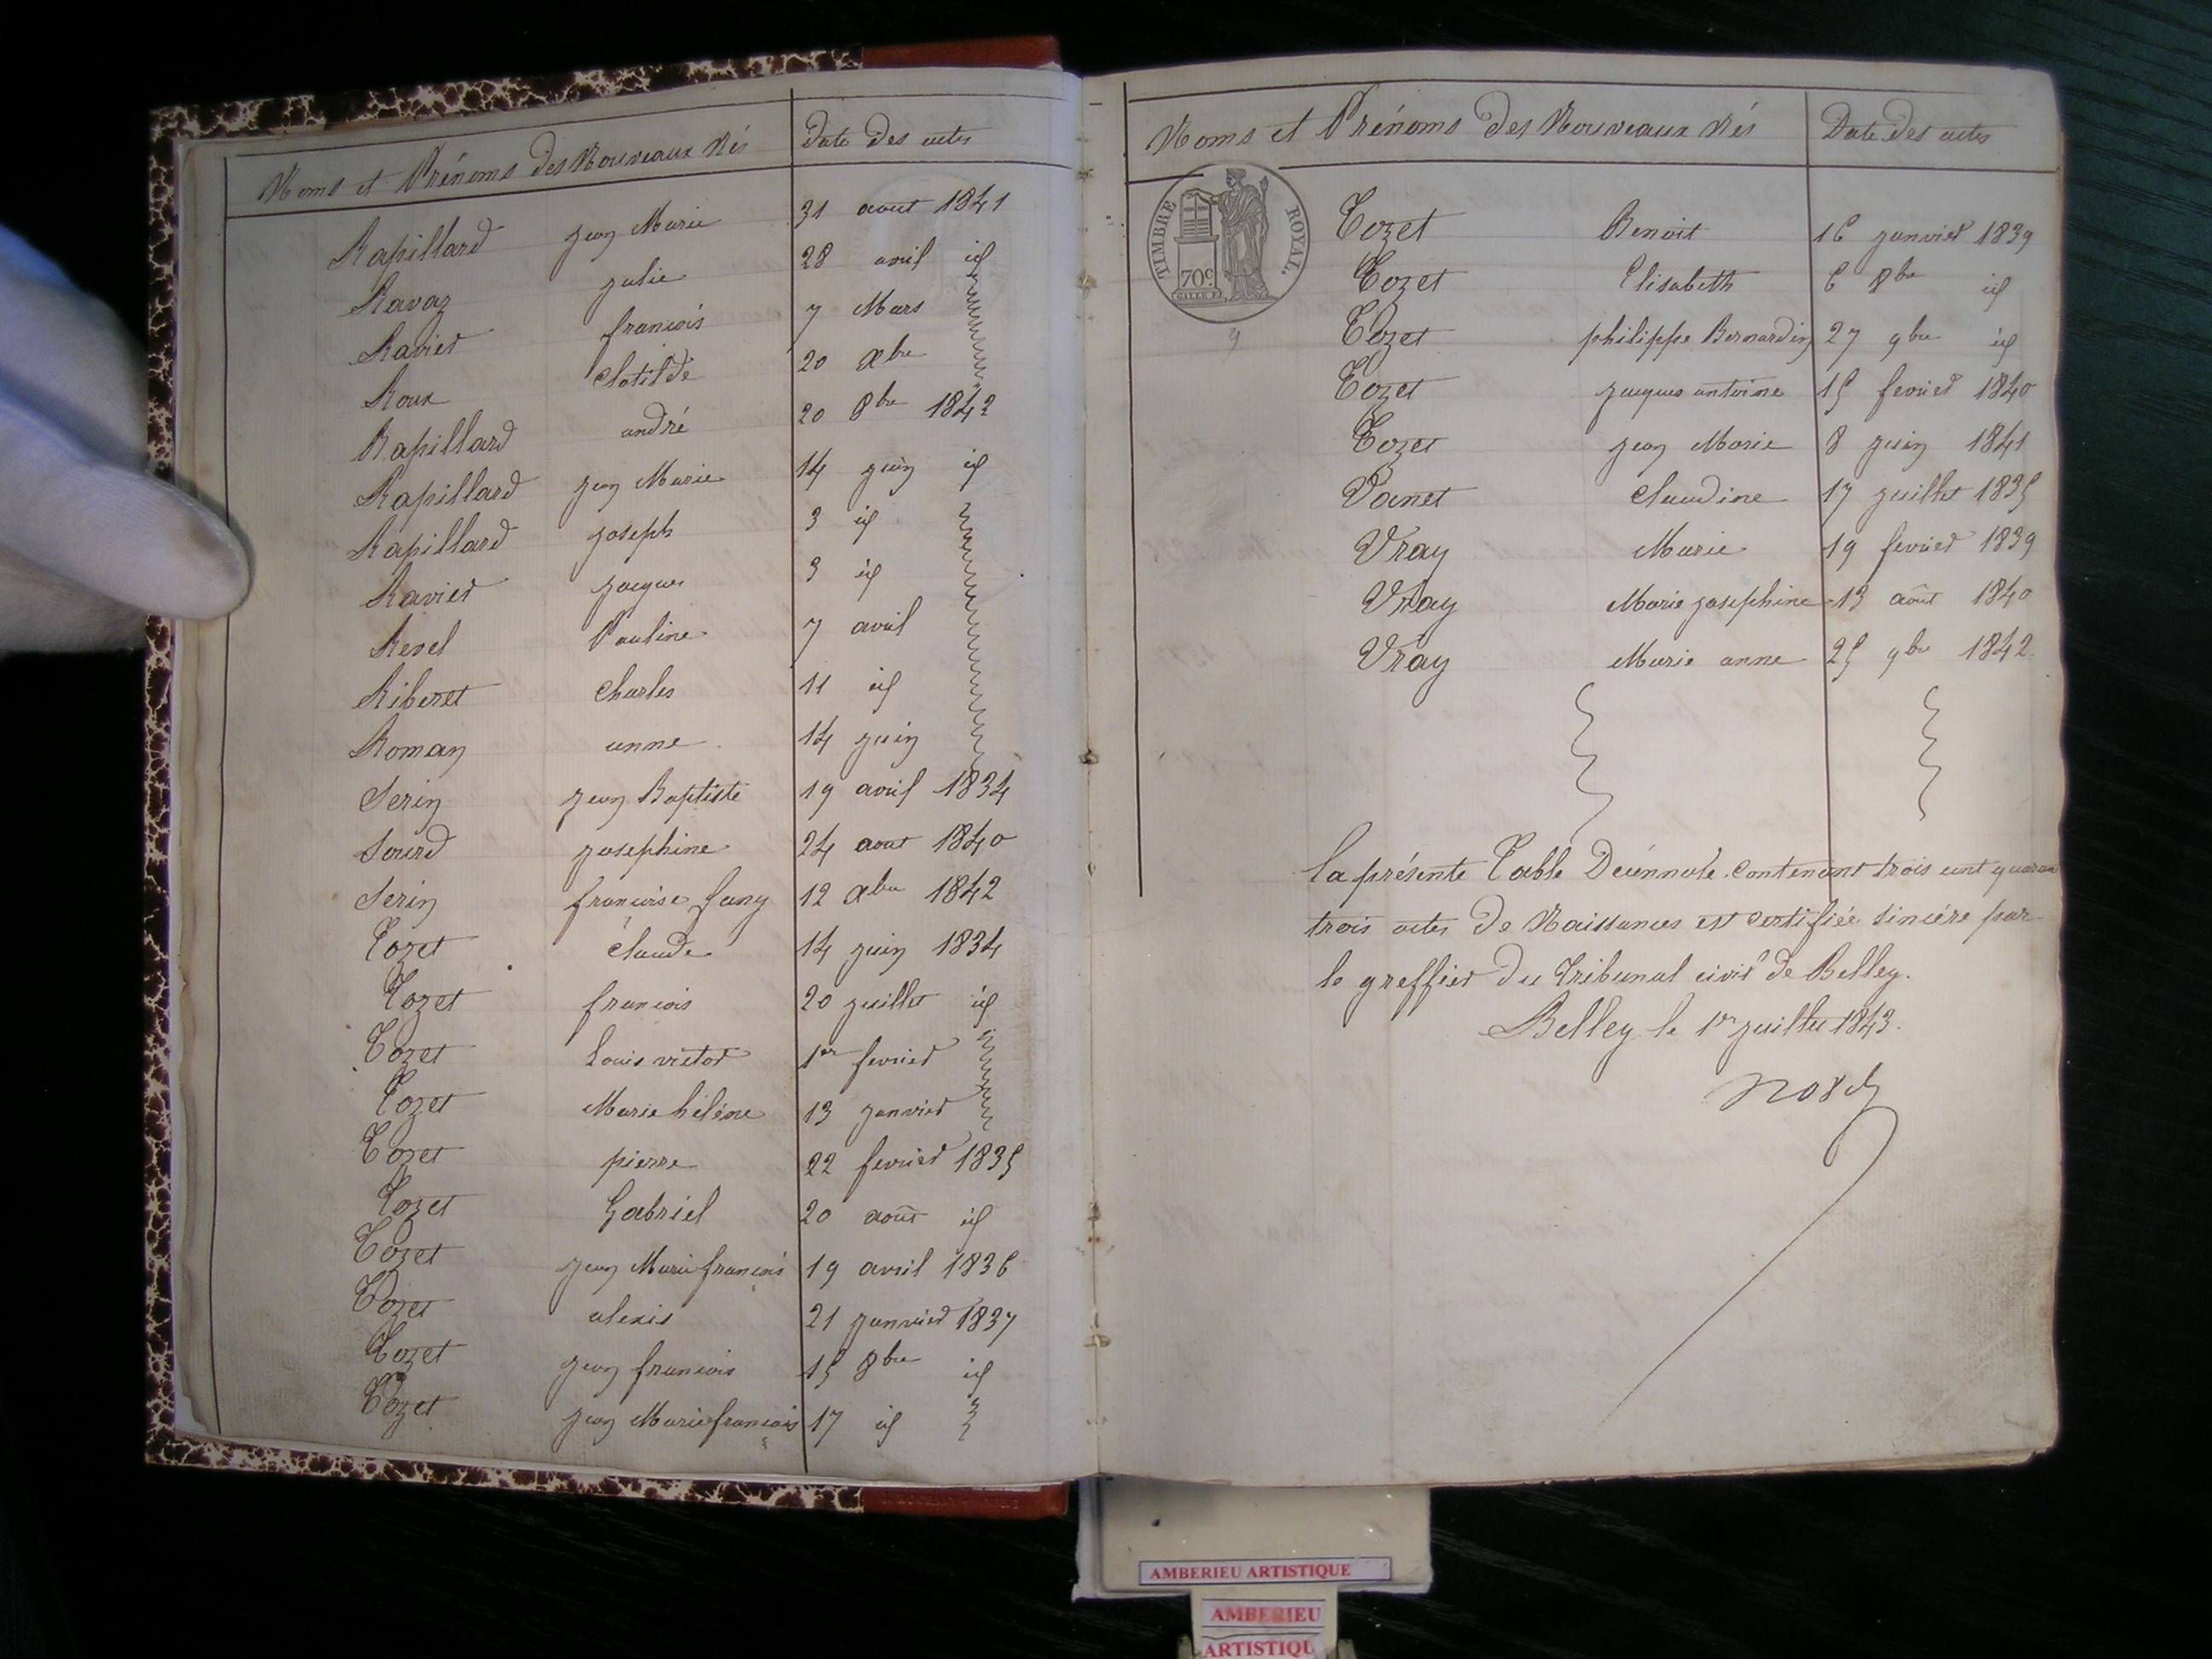 Noms et Prénoms des Nouveaux Nés Date des actes
Rapillard jean Marie 31 aout 1841
Ravaz julie 28 avril id
Ravier francois 7 Mars
Roux Clotilde 20 xbre
Rapillard andré 20 8bre 1842
Rapillard jean Marie 14 juin id
Rapillard joseph 3 id
Ravier jacques 3 id
Revel Pauline 7 avril
Riberet Charles 11 id
Roman anne 14 juin
Serin jean Baptiste 19 avril 1834
Sourd josephine 24 aout 1840
Serin francoise fany 12 xbre 1842
Tozet Claude 14 juin 1834
Tozet francois 20 juillet id
Tozet Louis victor 1er fevrier
Tozet Marie hélène 13 janvier
Tozet pierre 22 fevrier 1835
Tozet Gabriel 20 août id
Tozet jean Marie françois 19 avril 1836
Tozet alexis 21 janvier 1837
Tozet jean francois 15 8bre id
Tozet jean Marie francois 17 id
Noms et Prénoms des Nouveaux Nés Date des actes
TIMBRE ROYAL.
70c.
9
Tozet Benoit 16 janvier 1839
Tozet Elisabeth 6 8bre id
Tozet philippe Bernardin 27 9bre id
Tozet jacques antoine 15 fevrier 1840
Tozet jean Marie 8 juin 1841
Vanet Claudine 17 juillet 1835
Vray Marie 19 fevrier 1839
Vray Marie josephine 13 août 1840
Vray Marie anne 25 9bre 1842
la présente Table Décennale contenant trois cent quaran
trois actes de Naissances est certifiée sincère par
le greffier du Tribunal civil de Belley.
Belley le 1er juillet 1843.
AMBERIEU ARTISTIQUE
AMBERIEU
ARTISTIQU